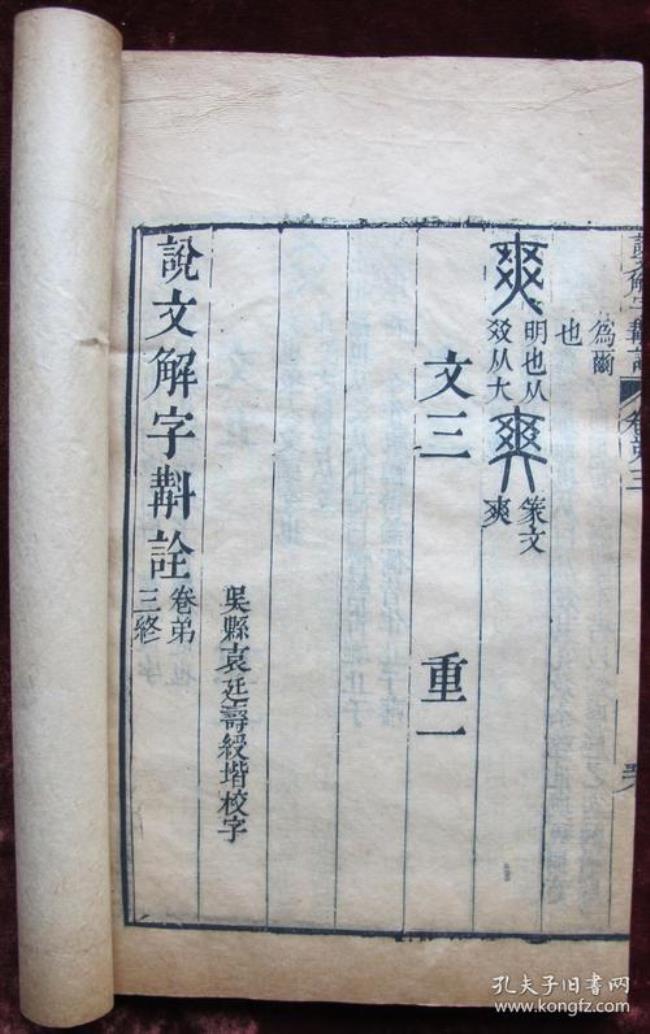 說文解字斠詮
卷弟三
爲爾
也
爽明也从㸚从大𠁊篆文爽
文三 重一
吳縣袁廷壽綬堦校字
說文解字斠詮卷弟三終
孔夫子旧书网
www.kongfz.com